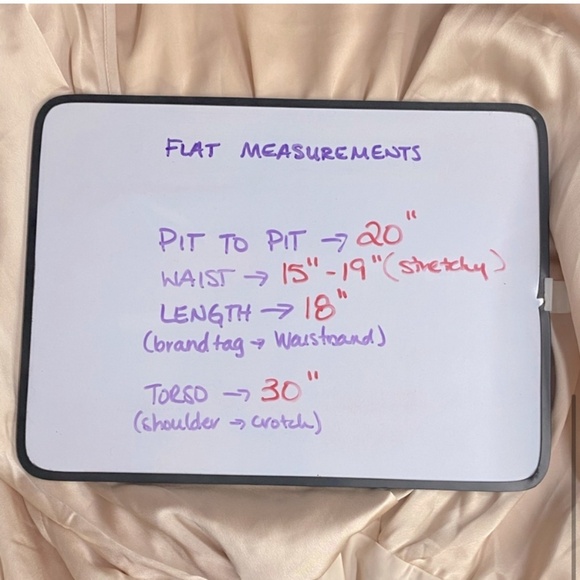 FLAT MEASUREMENTS
PIT TO PIT → 20"
WAIST → 15" - 19" (stretchy)
LENGTH → 18"
(brand tag → Waistband)
TORSO → 30"
(shoulder → crotch)